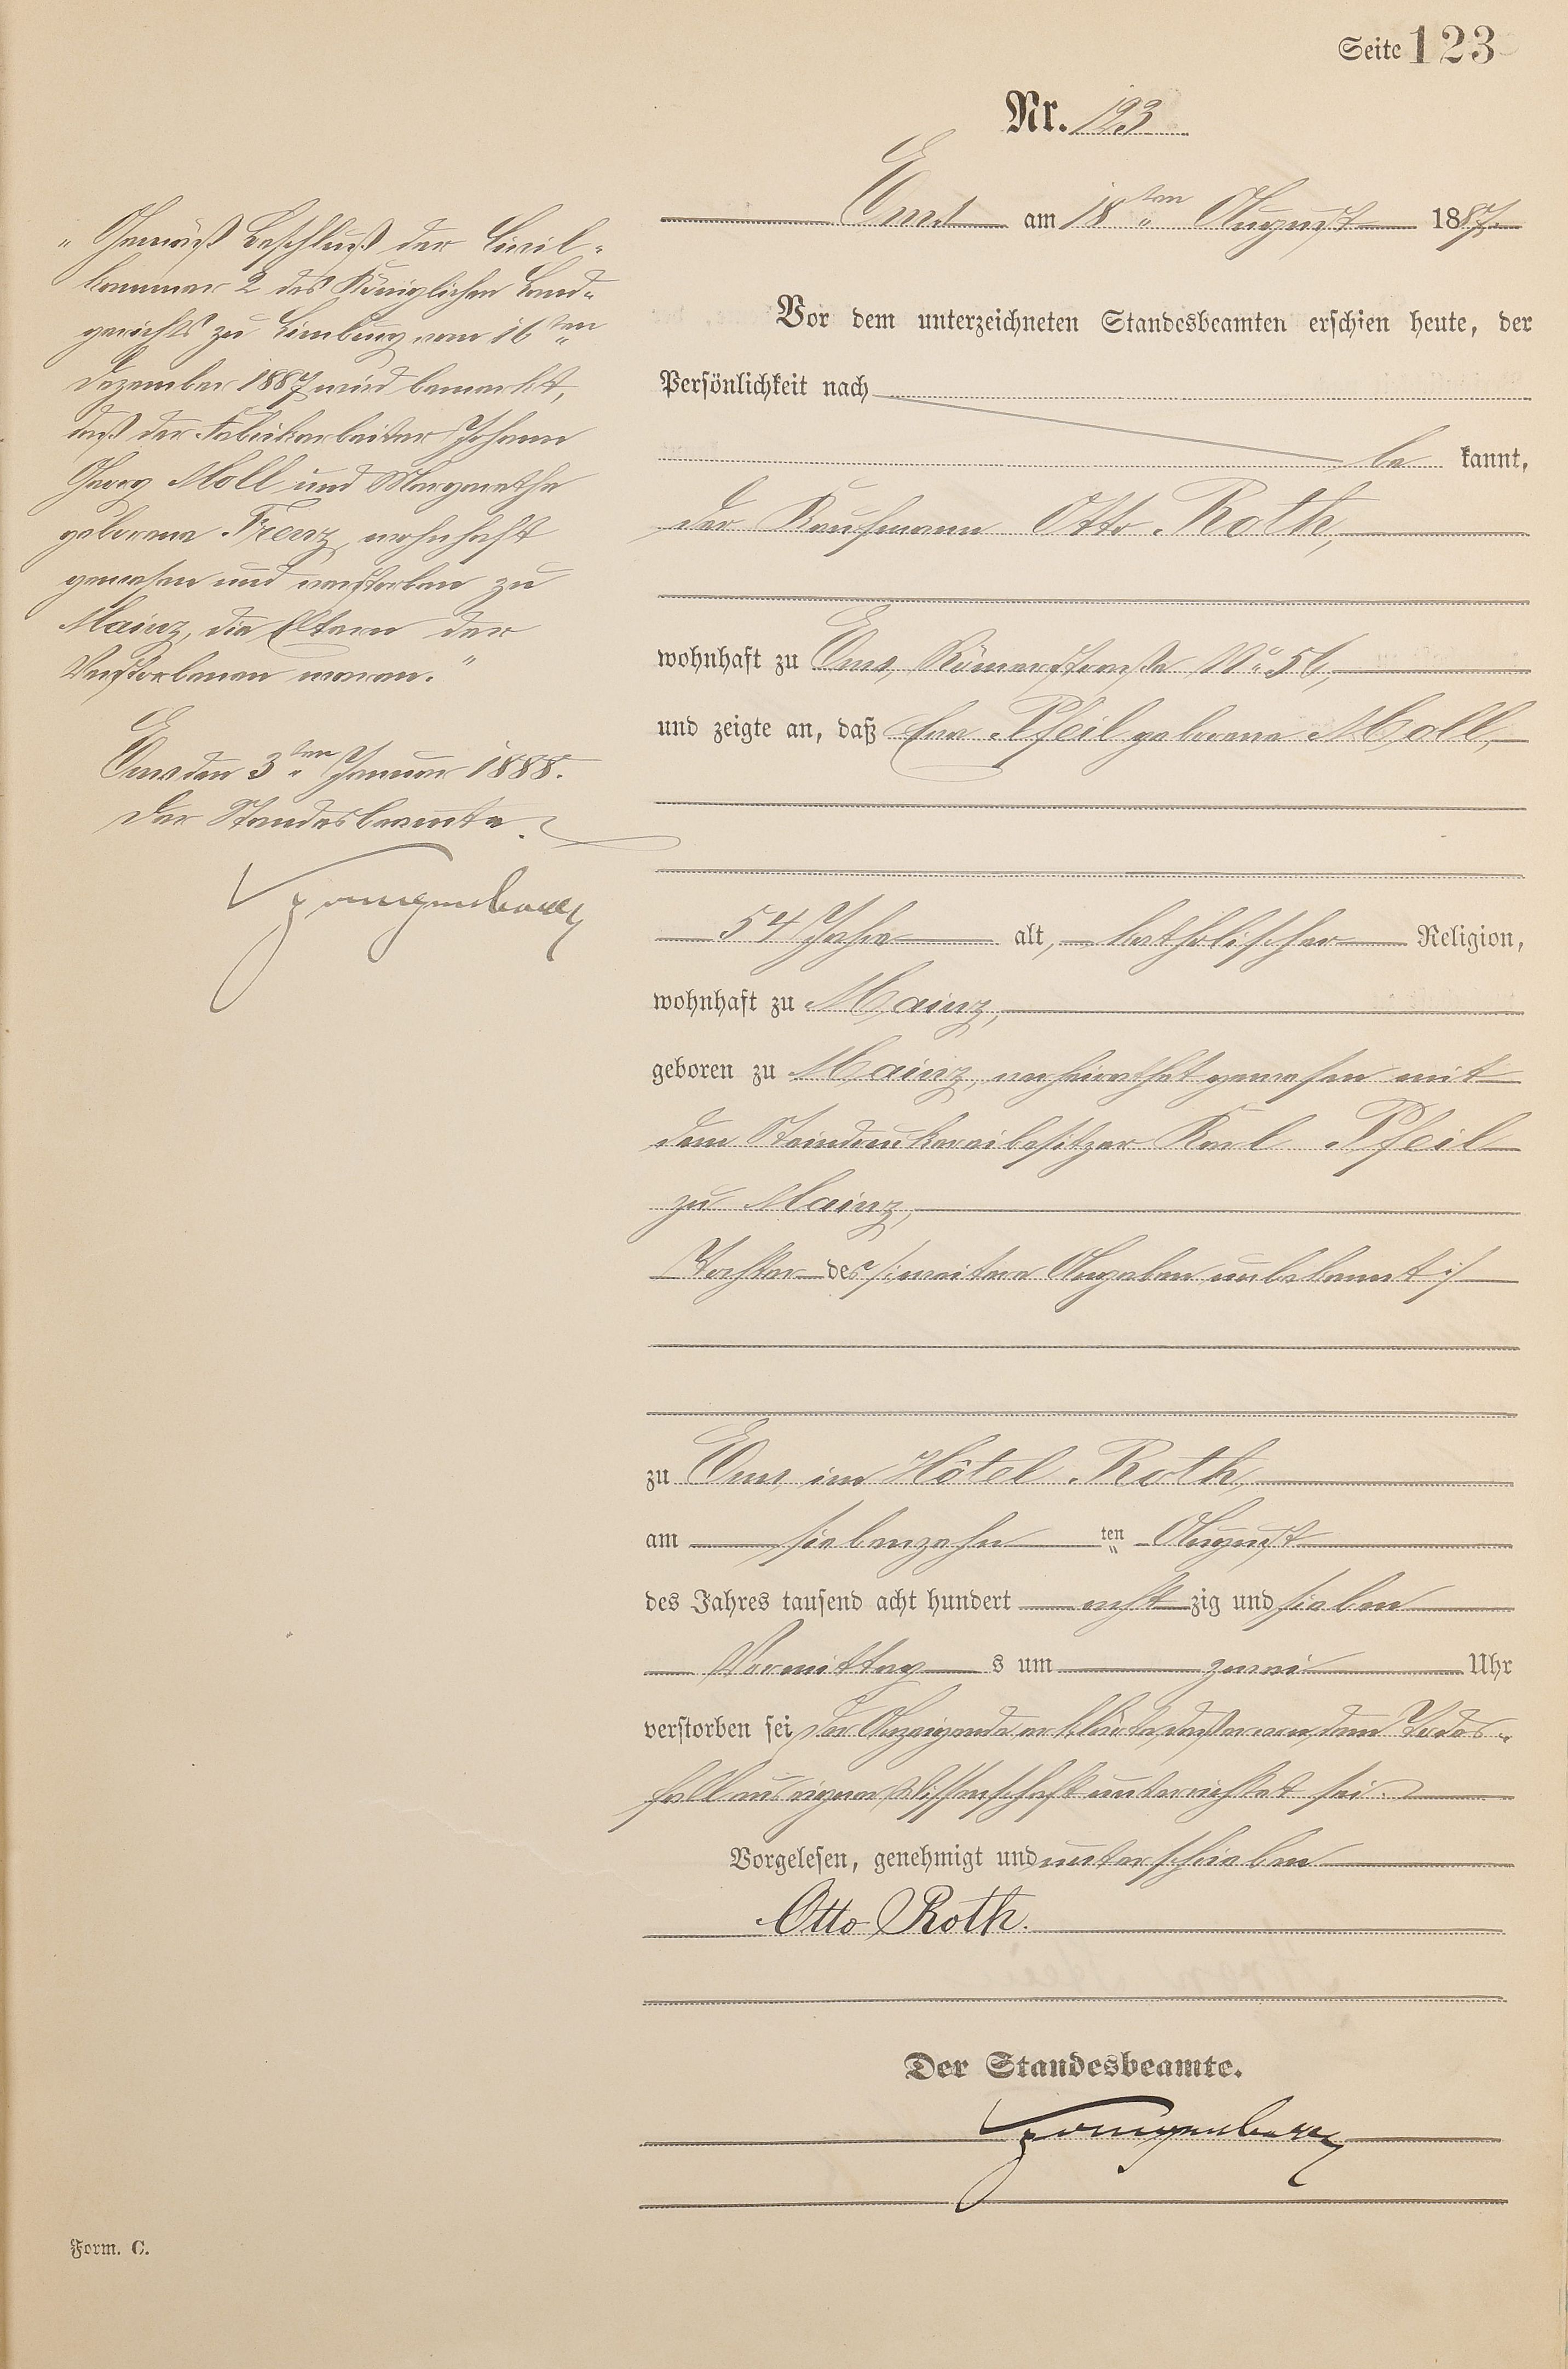 Seite 123
Nr. 123
Ems am 18ten August 1887.
Vor dem unterzeichneten Standesbeamten erschien heute, der
Persönlichkeit nach
be kannt,
der Kaufmann Otto Roth,
wohnhaft zu Ems, Römerstraße No 56,
und zeigte an, daß Eva Pfeil geborene Moll,
54 Jahre alt, katholischer Religion,
wohnhaft zu Mainz,
geboren zu Mainz, verheirathet gewesen mit
dem Steindruckereibesitzer Karl Pfeil
zu Mainz,
Tochter des /: weitere Angaben unbekannt :/
zu Ems, im Hôtel Roth,
am siebenzehn ten August
des Jahres tausend acht hundert acht zig und sieben
Vormittag s um zwei Uhr
verstorben sei, der Anzeigende erklärte, daß er von dem Todes-
fall aus eigener Wissenschaft unterrichtet sei.
Vorgelesen, genehmigt und unterschrieben
Otto Roth.
Der Standesbeamte.
„Gemäß Beschluß der Civil-
kammer 2 des Königlichen Land-
gerichts zu Limburg vom 16ten
Dezember 1887 wird bemerkt,
daß der Fabrikarbeiter Johann
Georg Moll und Margarethe
geborene Frenz, wohnhaft
gewesen und verstorben zu
Mainz, die Eltern der
Verstorbenen waren."
Ems den 3ten Januar 1888.
Der Standesbeamte.
Form. C.